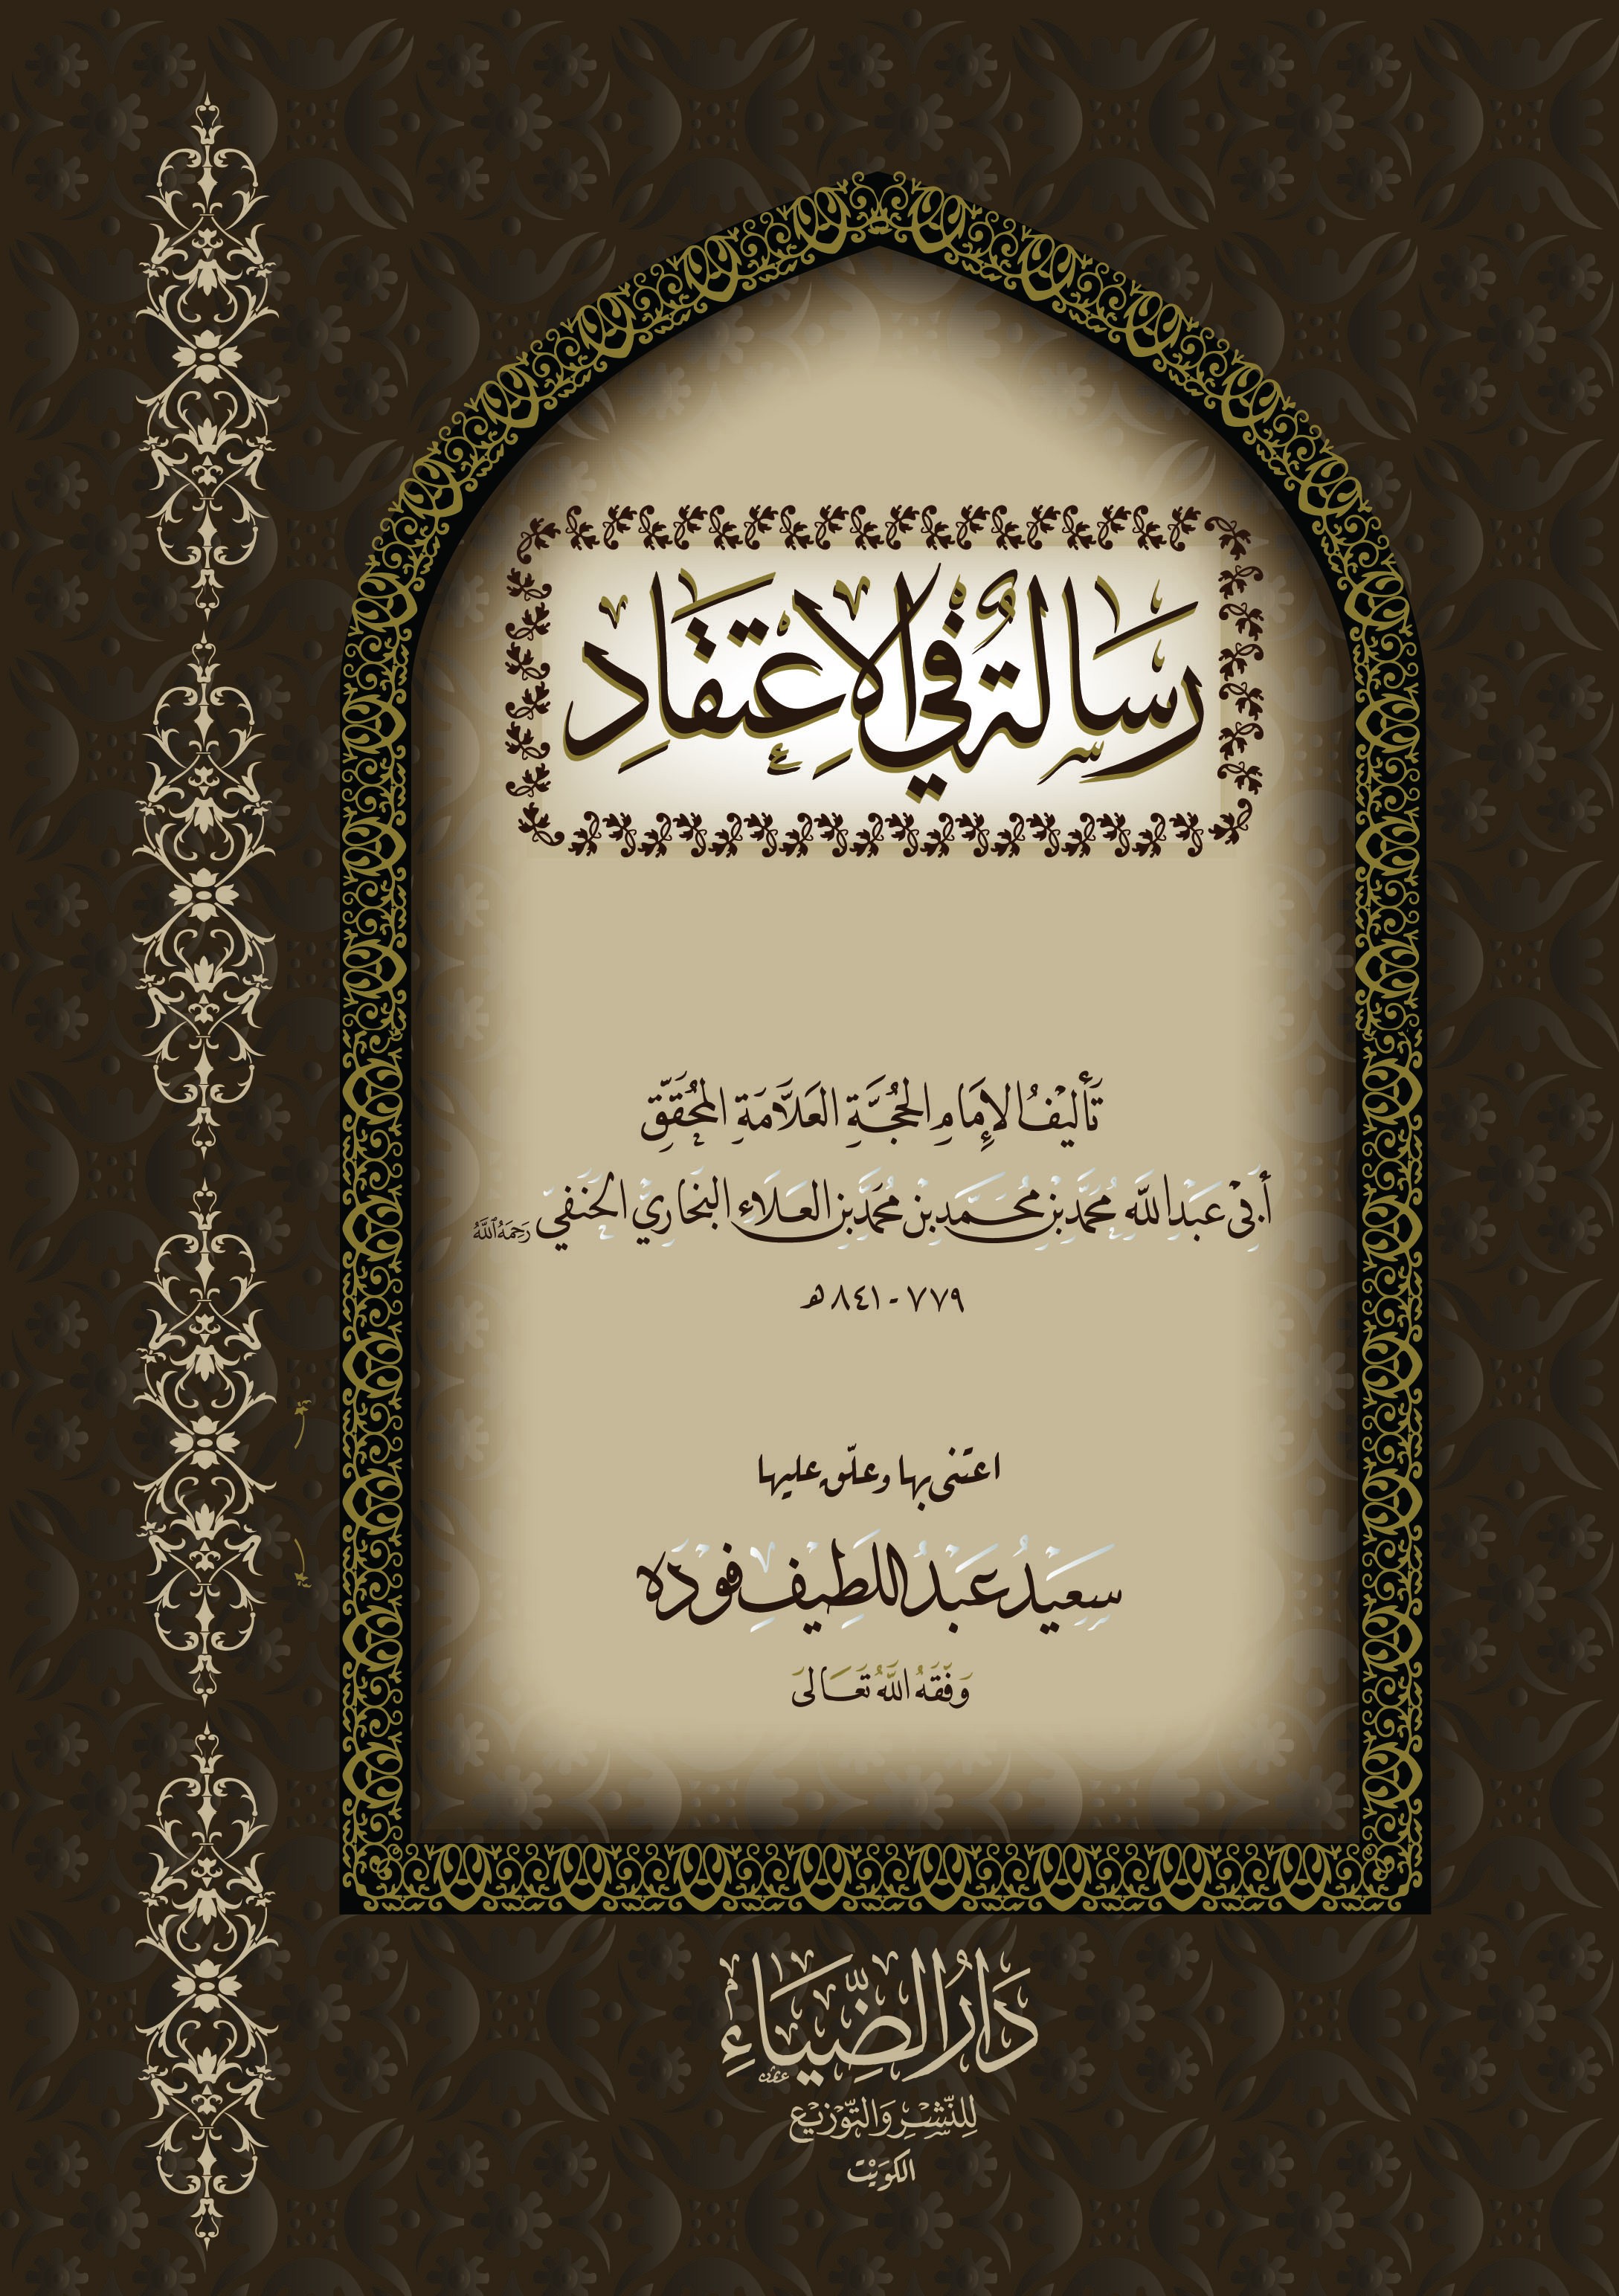 رِسَالَةٌ فِي الِاعْتِقَادِ
تَأْلِيْفُ الإِمَامِ الحُجَّةِ العَلَّامَةِ المُحَقِّقِ
أَبِيْ عَبْدِ اللَّهِ مُحَمَّدِ بْنِ مُحَمَّدِ بْنِ مُحَمَّدِ بْنِ العَلَاءِ البُخَارِيِّ الحَنَفِيِّ رَحِمَهُ ٱللَّهُ
٧٧٩ - ٨٤١ هـ
اعتنى بها وعلّق عليها
سَعِيْدُ عَبْدُ اللَطِيْفِ فُوْدَه
وَفَّقَهُ اللَّهُ تَعَالَى
دَارُ الضِّيَاءِ
لِلنَّشْرِ وَالتَّوْزِيْعِ
الكُوَيْت